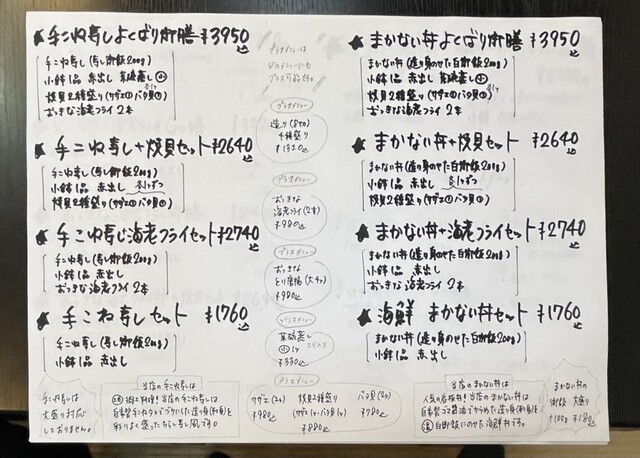 ★手こね寿しよくばり御膳 ¥3950
手こね寿し(寿し御飯200g)
小鉢1品 赤出し 茶碗蒸し㊥
焼貝2種盛り(サザエ①バタ貝①)
おっきな海老フライ 2本
★手こね寿し+焼貝セット ¥2640
手こね寿し(寿し御飯200g)
小鉢1品 赤出し 各1ヶずつ
焼貝2種盛り(サザエ①バタ貝①)
★手こね寿し海老フライセット ¥2740
手こね寿し(寿し御飯200g)
小鉢1品 赤出し
おっきな海老フライ 2本
★手こね寿しセット ¥1760
手こね寿し(寿し御飯200g)
小鉢1品 赤出し
プラスメニューは
プラス可能です。
プラスメニュー
造り(8切)
¥1320
プラスメニュー
おっきな
海老フライ(2本)
¥980
プラスメニュー
おっきな
とり唐揚(大4ヶ)
¥980
プラスメニュー
茶碗蒸し
¥330
プラスメニュー
サザエ(2ヶ)
¥980
焼貝2種盛り
(サザエ1ヶ・バタ貝1ヶ)
¥880
バタ貝(2ヶ)
¥780
★まかない丼よくばり御膳 ¥3950
まかない丼(造り身のせた白御飯200g)
小鉢1品 赤出し 茶碗蒸し㊥
焼貝2種盛り(サザエ①バタ貝①)
おっきな海老フライ 2本
★まかない丼+焼貝セット ¥2640
まかない丼(造り身のせた白御飯200g)
小鉢1品 赤出し 各1ヶずつ
焼貝2種盛り(サザエ①バタ貝①)
★まかない丼+海老フライセット ¥2740
まかない丼(造り身のせた白御飯200g)
小鉢1品 赤出し
おっきな海老フライ 2本
★海鮮 まかない丼セット ¥1760
まかない丼(造り身のせた白御飯200g)
小鉢1品 赤出し
手こね寿しは
大盛り対応
しておりません。
当店の手こね寿しは
郷土料理!当店の手こね寿しは
自家製手こねタレでづけにした造り身(刺身)を
彩りよく盛ったちらし寿し風です。
当店のまかない丼は
人気の看板丼!当店のまかない丼は
自家製ごま醤油でからめた造り身(刺身)を
白御飯にのせた海鮮丼です。
まかない丼の
御飯 大盛り
+100g ¥180